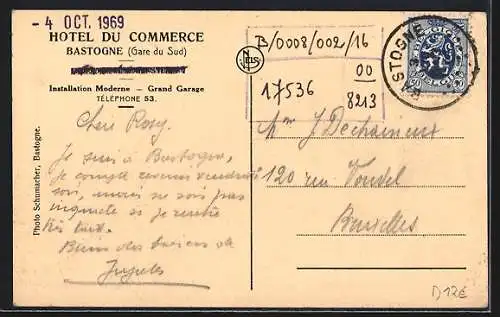 - 4 OCT. 1969
HOTEL DU COMMERCE
BASTOGNE (Gare du Sud)
Installation Moderne - Grand Garage
TÉLÉPHONE 53.
NELS
B/0008/002/16
00
17536
8213
BASTOGNE
Chère Rosy.
Je suis à Bastogne,
je compte revenir vendredi
soir, mais ne sois pas
inquiète si je rentre
très tard.
Biens des baisers de
Jugules
Photo Schumacher, Bastogne.
Mme J Dechaineux
120 rue Vondel
Bruxelles
D12€